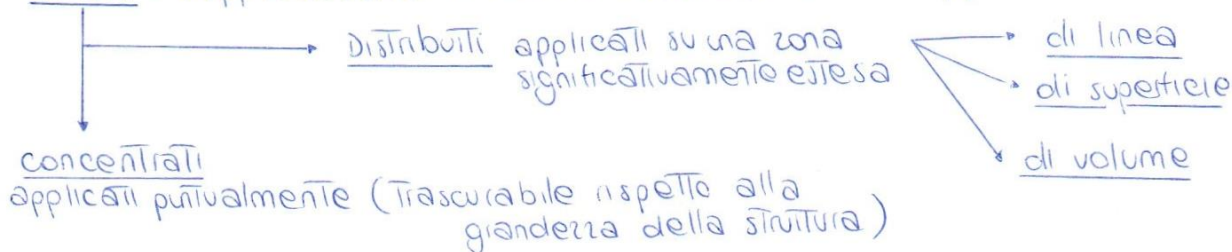 Distribuiti applicati su una zona
significativamente estesa
di linea
di superficie
di volume
concentrati
applicati puntualmente (trascurabile rispetto alla
grandezza della struttura)